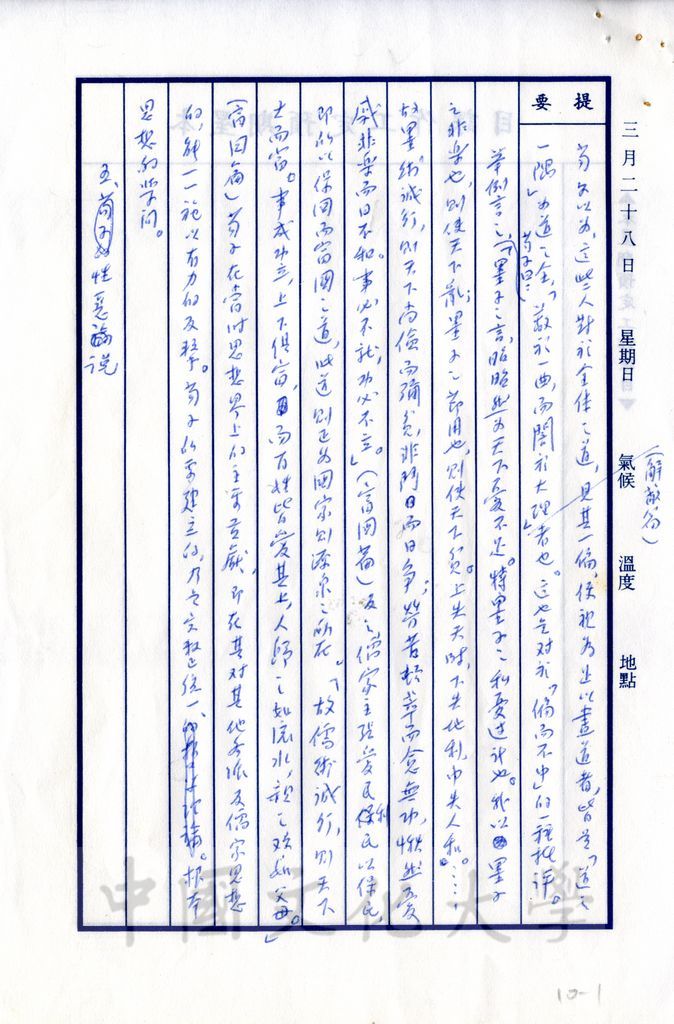 三月二十八日 星期日 氣候 溫度 地點
(解蔽篇)
提要
荀子以為,這些人對於全体之道,見其一偏,使視為足以盡道者,皆是「道之
一隅」為道之全,「蔽於一曲,而闇於大理」者也。這也是对於「偏而不中」的一種批評。
舉例言之,荀子曰:「墨子之言,昭昭然為天下憂不足。特墨子之私憂過計也。我以墨子
之非樂也,則使天下亂;墨子之節用也,則使天下貧。上失天時,下失地利,中失人和。……
故墨術誠行,則天下尚儉而彌貧,非鬥而日爭;勞苦頓萃而愈無功,愀然憂
戚非樂而日不和。事必不就,功必不立。」(富國篇)反之儒家主張愛民利民以保民,
即所以保国而富國之道,此道則正為國家財源泉之所在。「故儒術誠行,則天下
大而富。事成功立,上下俱富,而百姓皆愛其上,人歸之如流水,親之欢如父母。」
(富国篇)荀子在當時思想界上的主要貢献,即在其对其他各派及儒家思想
的,能一一說以有力的反擊。荀子所要建立的,乃是
思想的学问。
五、荀子的性惡論說
中國文化大學
10-1